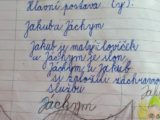 Hlavní postava (y):
Jakub a Jáchym
Jakub je malý človíček
a Jáchym je slon
Jáchym a Jakub
si založili záchrannou
službu
Jáchym